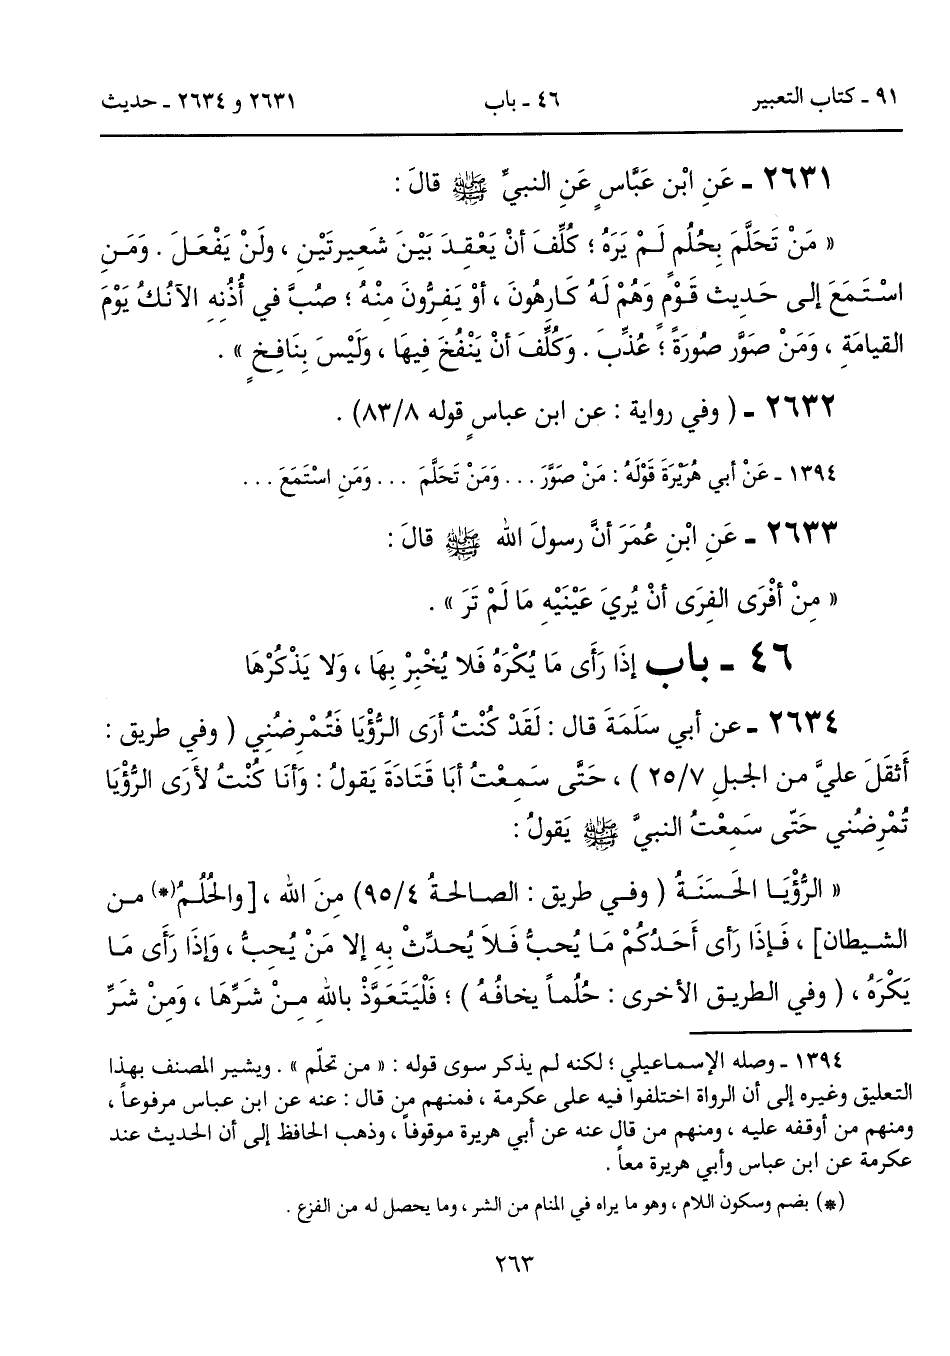 ٩١ ـ كتاب التعبير ٤٦ ـ باب ٢٦٣١ و ٢٦٣٤ ـ حديث
٢٦٣١ ـ عَنِ ابْن عَبَّاسٍ عَنِ النبيِّ ﷺ قالَ :
« مَنْ تَحَلَّمَ بِحُلُمٍ لَـمْ يَرَهُ ؛ كُلِّفَ أنْ يَعْقِـدَ بَيْنَ شَعِيرتَيْنِ ، ولَنْ يَفْعَلَ . وَمَـنِ
اسْـتَمَعَ إلى حَدِيث قَـوْمٍ وَهُمْ لَهُ كَارِهُونَ ، أوْ يَفِرُّونَ مِنْهُ ؛ صُبَّ في أُذُنِهِ الآنُـكُ يَوْمَ
القيامَةِ ، وَمَنْ صَوَّر صُورَةً ؛ عُذِّبَ . وَكُلِّفَ أنْ يَنْفُخَ فِيهَا ، وَلَيْسَ بِنَافِـخٍ » .
٢٦٣٢ ـ ( وفي رواية : عن ابن عباسٍ قوله ٨٣/٨) .
١٣٩٤ ـ عَنْ أبي هُرَيْرَةَ قَوْلَهُ : مَنْ صَوَّرَ . . . وَمَنْ تَحَلَّمَ . . . وَمَنِ اسْتَمَعَ . . .
٢٦٣٣ ـ عَنِ ابْنِ عُمَرَ أنَّ رسولَ الله ﷺ قالَ :
« مِنْ أفْرَى الفِرَى أنْ يُرِيَ عَيْنَيْهِ مَا لَمْ تَرَ » .
٤٦ ـ باب إذَا رَأَى مَا يُكْرَهُ فَلا يُخْبِرْ بِهَا ، وَلا يَذْكُرْهَا
٢٦٣٤ ـ عن أبي سَلَمَةَ قال : لَقَدْ كُنْتُ أرَى الـرُّؤْيَا فَتُمْرِضُنِي ( وفي طريق :
أَثقَلَ عليَّ من الجبلِ ٢٥/٧ ) ، حَتَّى سَـمِعْتُ أبَا قَتَادَةَ يَقولُ : وَأنَا كُنْتُ لأرَى الرُّؤْيَا
تُمْرِضُني حَتّى سَمِعْتُ النبيَّ ﷺ يَقولُ :
« الرُّؤْيَـا الحَسَنَـةُ ( وفـي طريق : الصـالحـةُ ٩٥/٤) مِنَ الله ، [والحُلُـمُ(*) مـن
الشـيطان] ، فَـإذَا رَأى أَحَدُكُمْ مَا يُحبُّ فَلاَ يُحدِّثْ بِهِ إلا مَنْ يُحِبُّ ، وَإذَا رَأَى مَا
يَكْرَهُ ، ( وفي الطريـق الأخرى : حُلُماً يخافُـهُ ) ؛ فَلْيَتَعَوَّذْ باللهِ مِـنْ شَرِّهَا ، وَمِنْ شَرِّ
١٣٩٤ ـ وصله الإسـماعيلي ؛ لكنه لم يذكر سوى قوله : « من تحلّم » . ويشير المصنف بهذا
التعليق وغيره إلى أن الرواة اختلفوا فيه على عكرمة ، فمنهم من قال : عنه عن ابن عباس مرفوعاً ،
ومنهم من أوقفه عليه ، ومنهم من قال عنه عن أبي هريرة موقوفاً ، وذهب الحافظ إلى أن الحديث عند
عكرمة عن ابن عباس وأبي هريرة معاً .
(*) بضم وسكون اللام ، وهو ما يراه في المنام من الشر ، وما يحصل له من الفزع .
٢٦٣